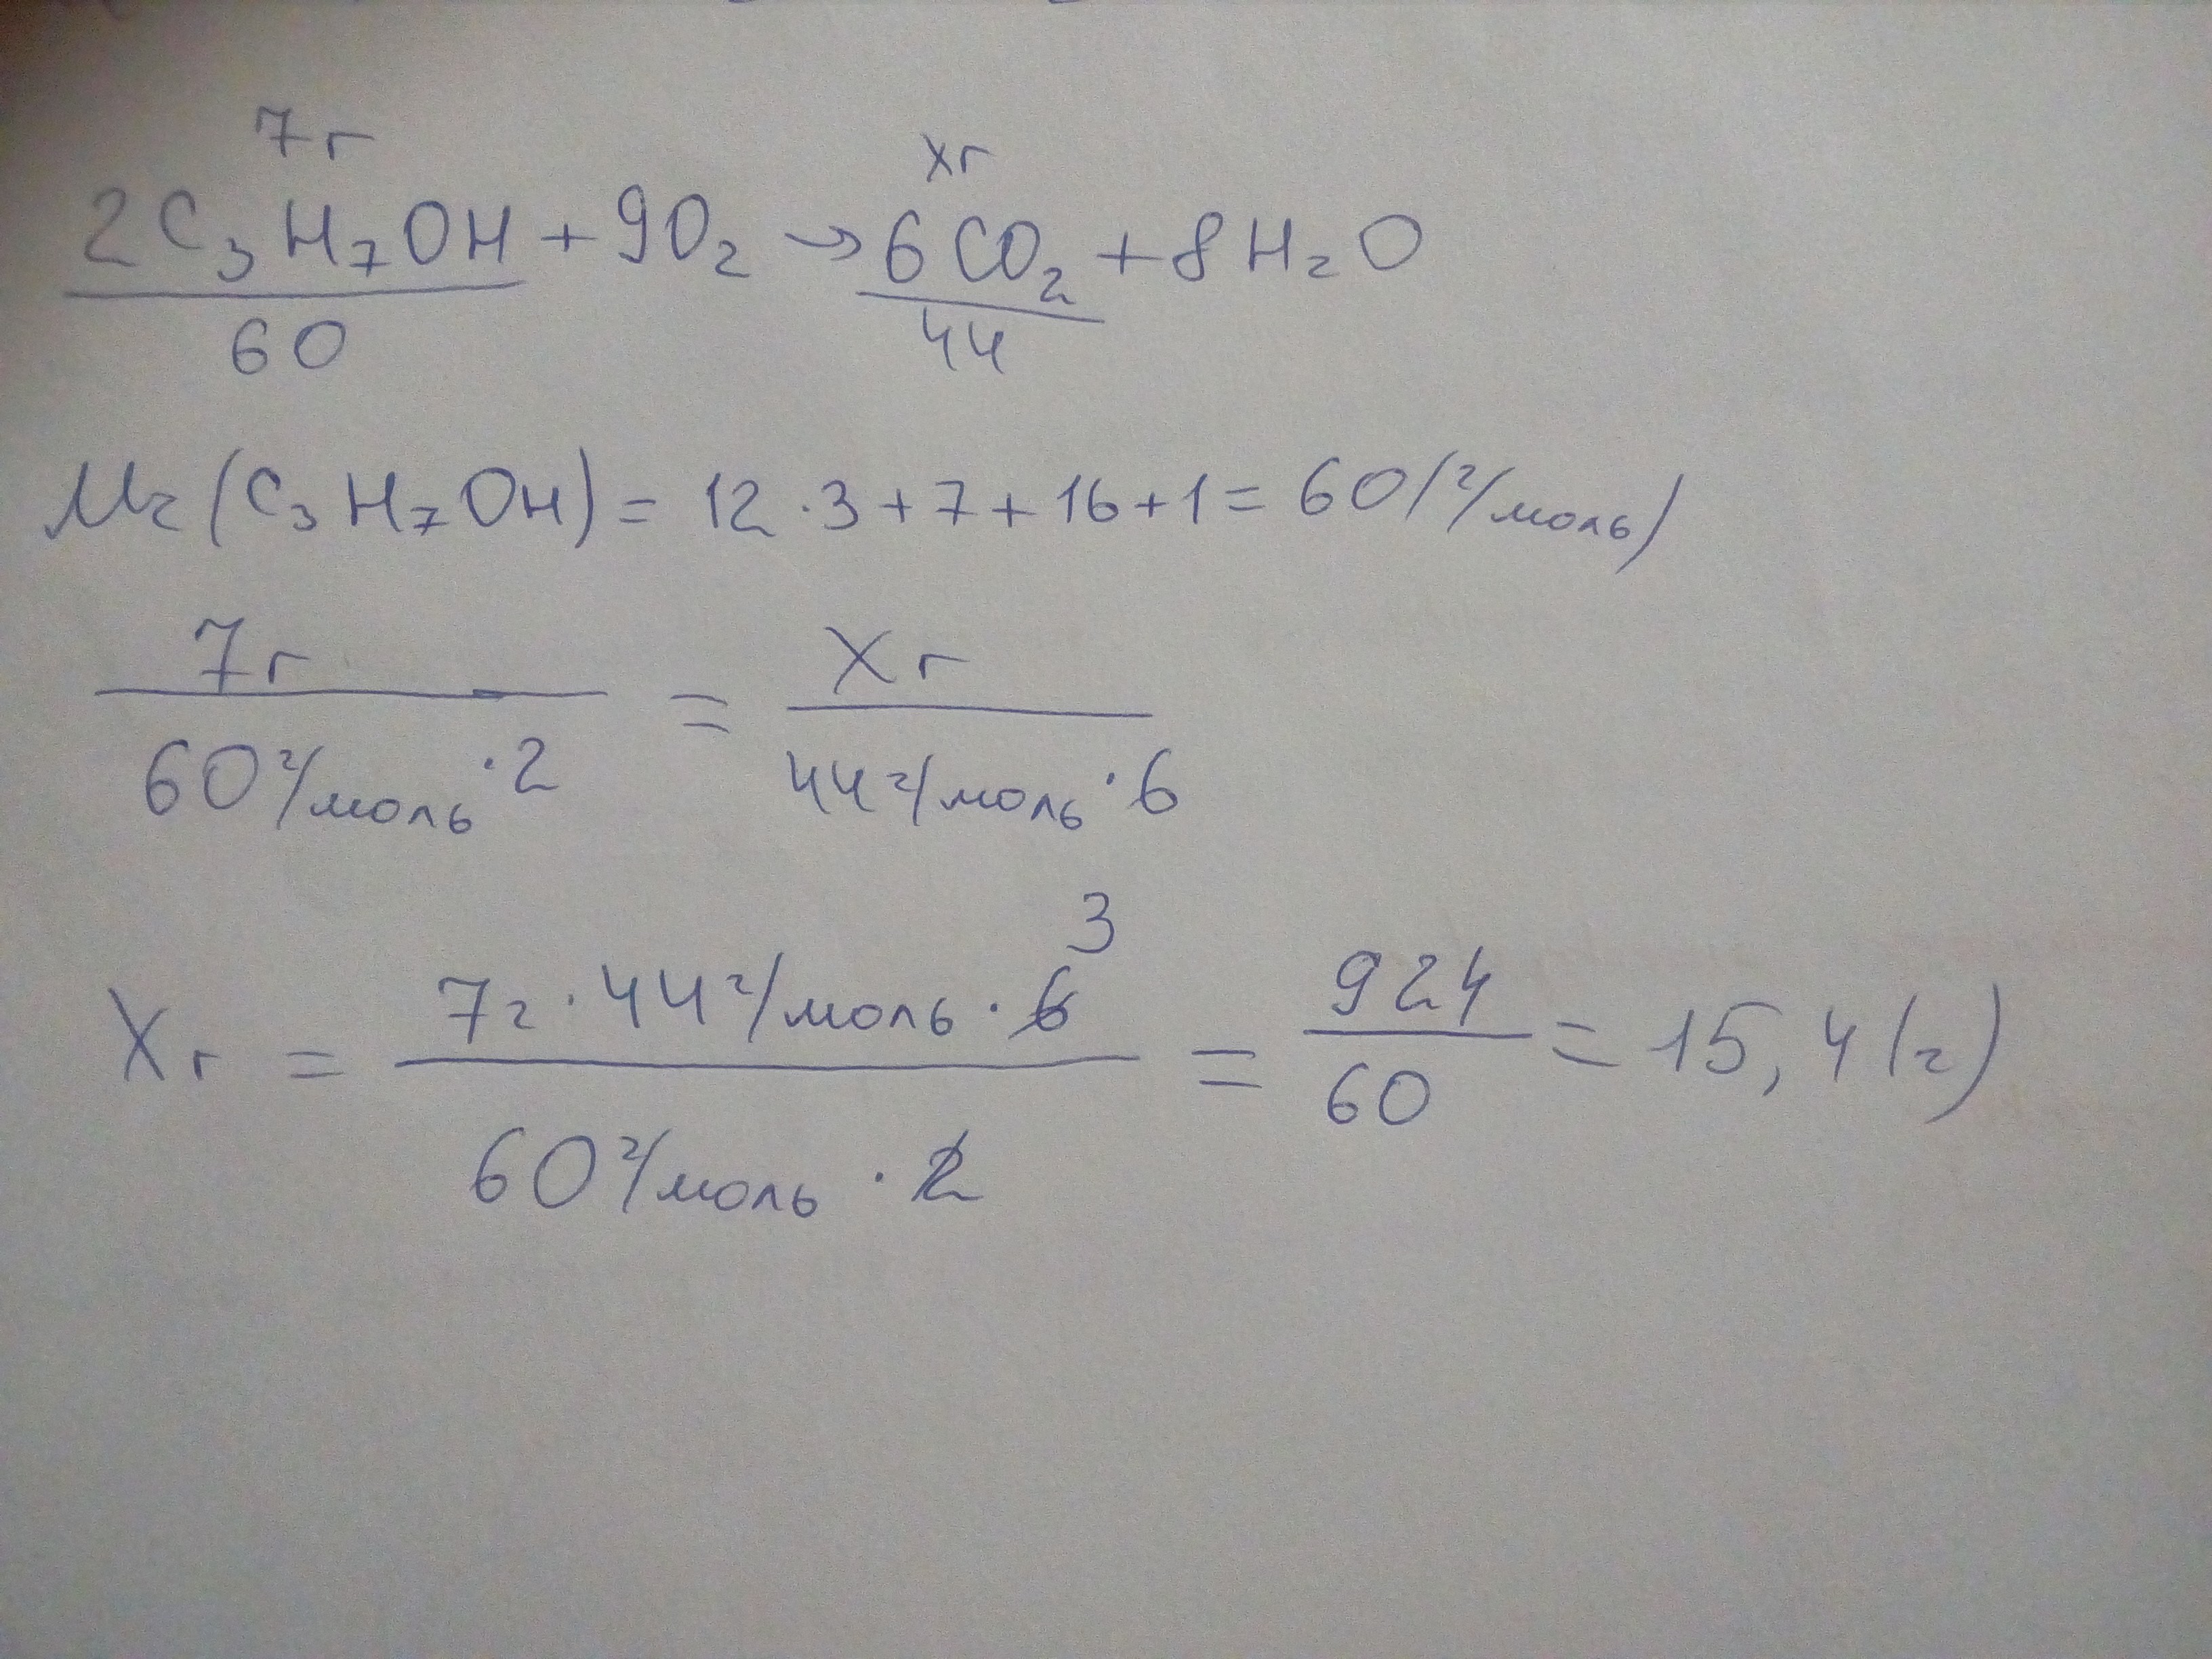 7г xг
2C₃H₇OH + 9O₂ → 6CO₂ + 8H₂O
60 44
Mr(C₃H₇OH) = 12 · 3 + 7 + 16 + 1 = 60(г/моль)
7г / 60 г/моль · 2 = Xг / 44 г/моль · 6
3
Xг = 7г · 44 г/моль · 6 / 60 г/моль · 2 = 924 / 60 = 15,4(г)